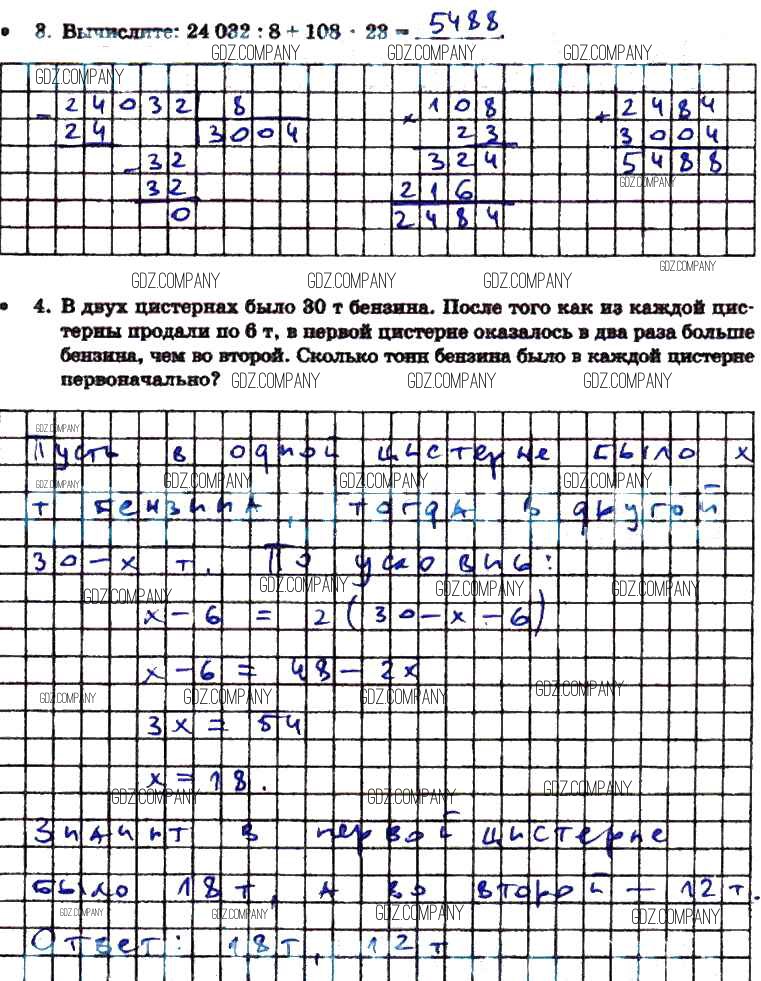 3. Вычислите: 24 032 : 8 + 108 · 23 = 5488.
GDZ.COMPANY GDZ.COMPANY GDZ.COMPANY
GDZ.COMPANY
- 24032 8 × 108 + 2484
24 3004 23 3004
- 32 324 5488
GDZ.COMPANY
32 216
0 2484
GDZ.COMPANY
GDZ.COMPANY GDZ.COMPANY GDZ.COMPANY
4. В двух цистернах было 30 т бензина. После того как из каждой цис-
терны продали по 6 т, в первой цистерне оказалось в два раза больше
бензина, чем во второй. Сколько тонн бензина было в каждой цистерне
первоначально? GDZ.COMPANY GDZ.COMPANY GDZ.COMPANY
GDZ.COMPANY
Пусть в одной цистерне было x
GDZ.COMPANY GDZ.COMPANY GDZ.COMPANY GDZ.COMPANY
т бензина, тогда в другой
30 - x т. По условию:
GDZ.COMPANY GDZ.COMPANY GDZ.COMPANY GDZ.COMPANY
x - 6 = 2(30 - x - 6)
x - 6 = 48 - 2x
GDZ.COMPANY GDZ.COMPANY GDZ.COMPANY GDZ.COMPANY
3x = 54
x = 18.
GDZ.COMPANY GDZ.COMPANY GDZ.COMPANY
Значит в первой цистерне
было 18 т, а во второй — 12 т.
GDZ.COMPANY GDZ.COMPANY GDZ.COMPANY GDZ.COMPANY
Ответ: 18 т, 12 т